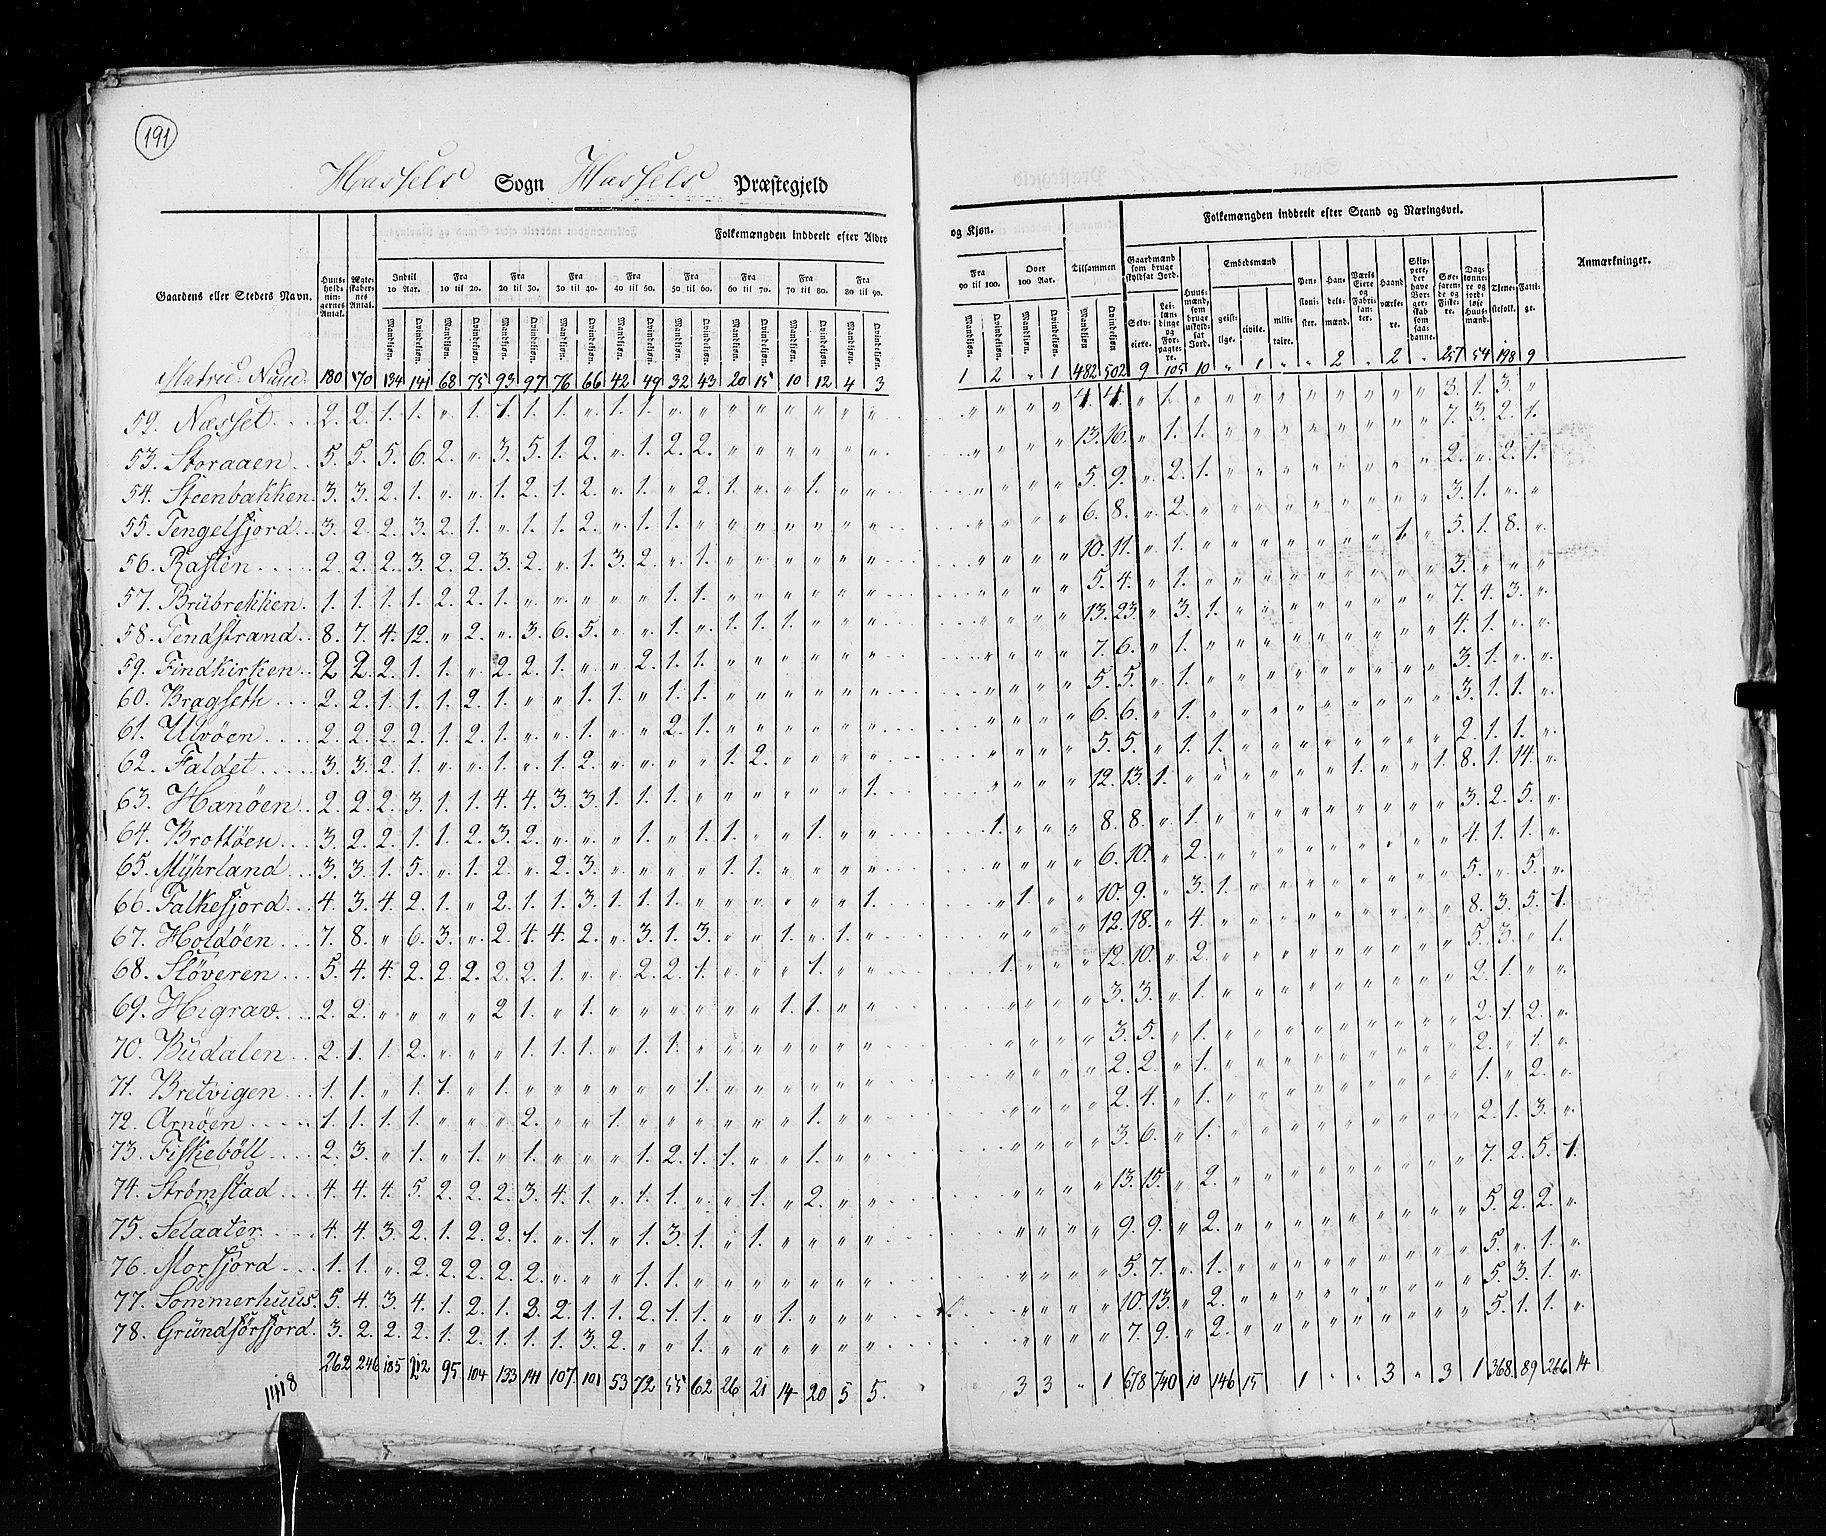 191
Hassels Sogn Hassels Præstegjeld
Folkemængden inddeelt efter Alder og Kjøn. Tilsammen Folkemængden inddeelt efter Stand og Næringsvei. Anmærkninger.
Gaardens eller Stedets Navn. Huus-hold-nin-gernes Antal. Ægte-skaber-nes Antal. Indtil 10 Aar. Fra 10 til 20. Fra 20 til 30. Fra 30 til 40. Fra 40 til 50. Fra 50 til 60. Fra 60 til 70. Fra 70 til 80. Fra 80 til 90. Fra 90 til 100. Over 100 Aar.
180 70 134 141 68 75 93 97 76 66 42 49 32 43 20 15 10 12 4 3 1 2 " 1 482 502 9 105 10 " 1 " " 2 " 2 " 257 54 198 9
Næsset 2. 2. 1. 1. " 1. 1. 1. 1. " 1. 1. " " " " " " " " " " " " 4. 4. " 1. " " " " " " " " " 3. 1. 3. "
53. Storaaen 5. 5. 5. 6. 2. " 3. 5. 1. 2. " 1. 2. 2. " " " " " " " " " " 13. 16. " 1. 1. " " " " " " " " 7. 3. 2. 1.
54. Steenbakken 3. 3. 2. 1. " " 1. 2. 1. 2. " 1. " 2. 1. " " 1. " " " " " " 5. 9. " 2. 1. " " " " " " " " 2. " 2. 1.
55. Tengelfjord 3. 2. 2. 3. 2. 1. " 1. 1. 2. " 1. 1. " " " " " " " " " " " 6. 8. " 2. " " " " " " " " " 3. 1. " "
56. Raften 2. 2. 2. 3. 2. 2. 3. 2. " 1. 3. 2. " 1. " " " " " " " " " " 10. 11. " 1. " " " " " " " 1. " 5. 1. 8. "
57. Brübrekken 1. 1. 1. 1. 2. 2. 1. " " " " " 1. 1. " " " " " " " " " " 5. 4. " 1. " " " " " " " " " 3. " " "
58. Tendstrand 8. 7. 4. 12. " 2. " 3. 6. 5. " " 1. " 1. 1. 1. " " " " " " " 13. 23. " 3. 1. " " " " " " " " 7. 4. 3. "
59. Findkirken 2. 2. 2. 1. 1. " 2. 2. 1. " " 2. 1. 1. " " " " " " " " " " 7. 6. " 1. " " " " " " " " " 4. 1. " "
60. Bragseth 2. 2. 1. 1. 1. 2. 1. " " 1. 1. " 1. 1. " " " " " " " " " " 5. 5. " 1. " " " " " " " " " 3. 1. " "
61. Ulvöen 2. 2. 2. 2. 1. 2. 1. " " 1. " " 2. 1. " " " " " " " " " " 6. 6. " 1. " " " " " " " " " 3. 1. 1. "
62. Faldet 3. 3. 2. 1. " " 1. " 1. 2. " " " " 1. 2. " " " " " " " " 5. 5. " 1. 1. " " " " " " " " 2. 1. 1. "
63. Hanöen 2. 2. 2. 3. 1. 1. 4. 4. 3. 3. 1. 1. 1. " " " " " " 1. " " " " 12. 13. 1. " " " " " " " 1. " 1. 8. 1. 14. "
64. Brottöen 3. 2. 2. 1. 1. 2. 3. 2. " " " 1. " 1. 1. " " 1. " " " 1. " " " 8. 8. " 1. " " " " " " " " " 3. 2. 5. "
65. Myhrland 3. 3. 1. 5. " 1. 2. " 2. 3. " " " " 1. 1. " " " " " " " " 6. 10. " 2. " " " " " " " " " 4. 1. 1. "
66. Falkefjord 4. 3. 4. 2. 1. " 2. 1. 1. 3. 1. 1. 1. " " " " " " 1. " 1. " " 10. 9. " 3. 1. " " " " " " " " 5. " 5. "
67. Holdöen 7. 8. " 6. 3. " 2. 4. 4. 2. " 3. 1. 3. " " 1. " 1. " " " " " 12. 18. " 4. " " " " " " " " " 8. 3. 5. 1
68. Slöveren 5. 4. 4. 2. 2. 2. 2. 2. 1. " " 2. 2. 1. " " " 1. " " 1. " " " 12. 10. " 2. " " " " " " " " " 5. 3. " 1.
69. Higrav 2. 2. " " " " 2 1. " 1. " " " " " " 1. 1. " " " " " " 3. 3. " 1. " " " " " " " " " 2. 1. " "
70. Budalen 2. 1. 1. 2. " " " 1. 1. 1. " 1. 1. " " " " " " " " " " " 3. 5. " 1. " " " " " " " " " 2. 1. 2. "
71. Bretvigen 1. 1. " 1. 1. " 1. " " " " " " 1. " " " " " " " " " " 2. 2. " 1. " " " " " " " " " 2. " 1. "
72. Arnöen 1. 1. 1. 1. " " " 2. " " 1. " " " " " " 1. " " " " " " 2. 4. " 1. " " " " " " " " " 1. " 2. "
73. Fiskeböll 2. 3. " 1. " 1. " 1. " " " 1. 2. 1. 1. " " 1. " " " " " " 3. 6. " 1. " " " " " " " " " 2. 1. 3. "
74. Strömstad 4. 4. 4. 5. 2. 2. 2. 3. 4. 1. " 1. 1. " " 1. " 2. " " " " " " 13. 15. " 2. " " " " " " " " " 7. 2. 5. 1
75. Selaater 4. 4. 3. 2. 1. 2. 2. 1. " 1. " 1. 3. 1. " 1. " " " " " " " " 9. 9. " 2. " " " " " " " " " 5. 2. 2. "
76. Morfjord 1. 1. " 2. 2. 2. 2. 2. " " " 1. 1. " " " " " " " " " " " 5. 7. " 1. " " " " " " " " " 5. " 1. "
77. Sommerhuus 5. 4. 3. 4. 1. 2. 1. 3. 2. 1. 1. 2. 1. 1. " " 1. " " " " " " " 10. 13. " 2. " " " " " " " " " 5. 3. 1. "
78. Grundförfjord 3. 2. 2. 2. 1. 2. 1. 1. 1. 3. 2. " " 1. " " " " " " " " " " 7. 9. " 2. " " " " " " " " " 5. 1. 1. "
262 246 185 212 95 104 133 141 107 101 53 72 55 62 26 21 14 20 5 5. 3 3 " 1 678 740 10 146 15 1 " " 3 " 3 1 368 89 266 14
1418